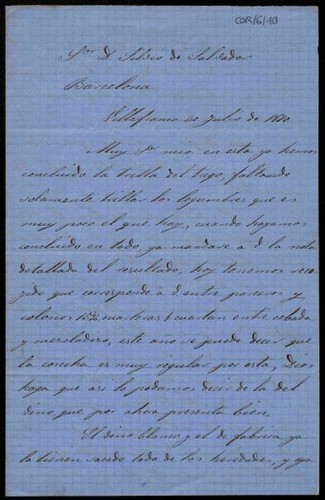 COR/6/10
Sr D. Silvio de Salvador
Barcelona
Villafranca 20 Julio de 1870
Muy Sr mio en esta ya hemos
concluida la trilla del trigo, faltando
solamente trillar los legumbres que es
muy poco el que hay, cuando hayamos
concluido en todo ya mandare a d la nota
detallada del resultado, hoy tenemos reco
jido que corresponde a d entre parceros y
colonos 15 cuarteras 1 cuartan entre cebada
y mezcladizo, este año se puede decir que
la cosecha es muy regular por esta, Dios
haga que asi lo podamos decir de la del
vino que por ahora presenta bien.
El vino blanco y el de fabrica ya
lo tienen sacado todo de las heredades, y ya